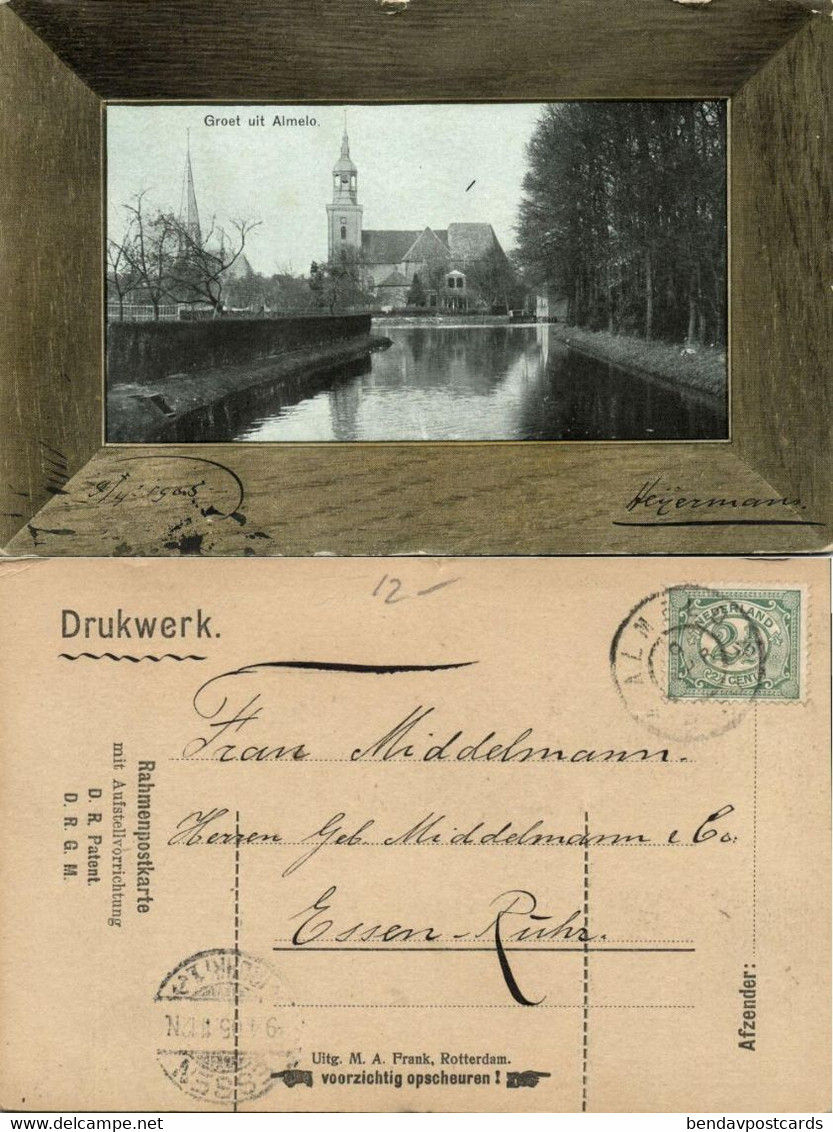 Groet uit Almelo.
Heÿermans.
12-
Drukwerk.
ALMELO
NEDERLAND
2½
2½ CENT
Frau Middelmann.
Herren Geb. Middelmann & Co.
Essen-Ruhr.
Rahmenpostkarte
mit Aufstellvorrichtung
D. R. Patent.
D. R. G. M.
Afzender:
ESSEN
Uitg. M. A. Frank, Rotterdam.
voorzichtig opscheuren!
bendavpostcards